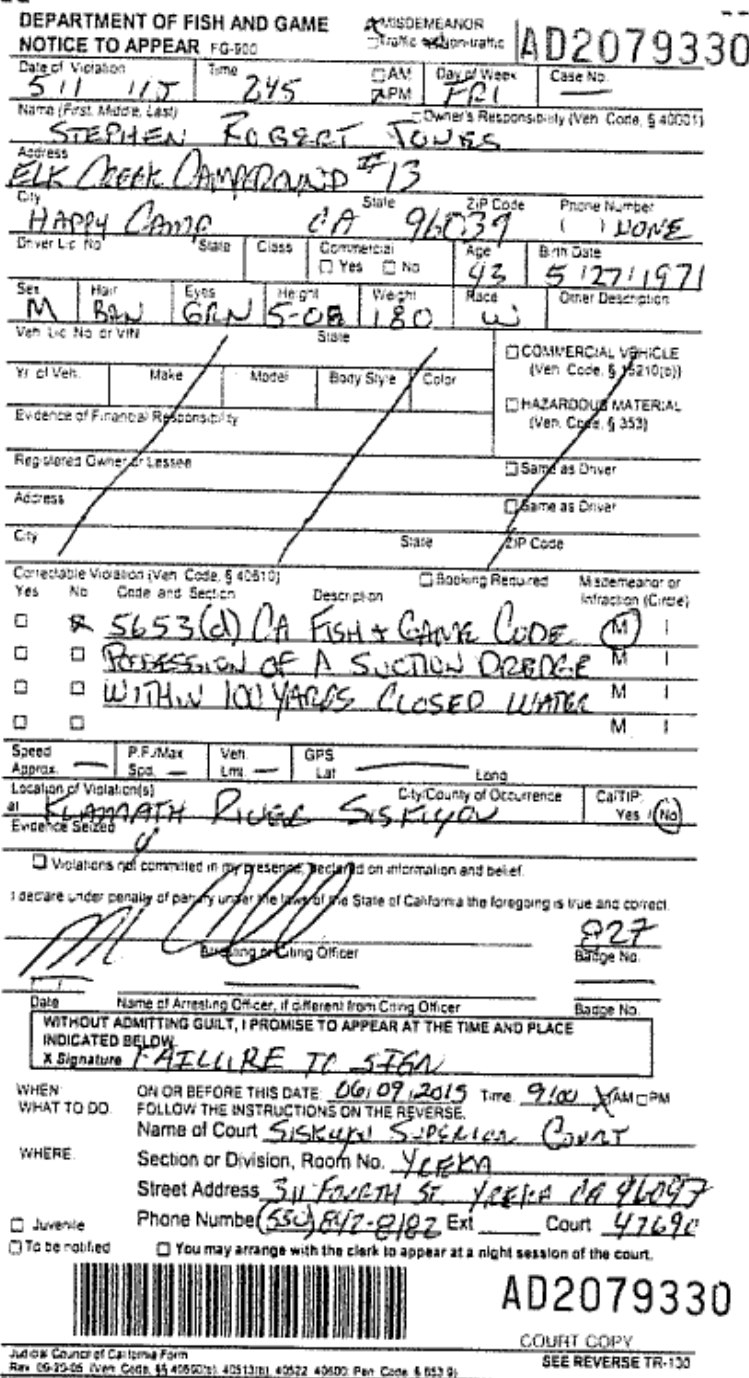 DEPARTMENT OF FISH AND GAME
NOTICE TO APPEAR FG-900
MISDEMEANOR
Traffic Non-traffic
AD2079330
Date of Violation Time AM Day of Week Case No.
5 / 1 / 15 245 PM FRI —
Name (First, Middle, Last) Owner's Responsibility (Veh. Code, § 40001)
STEPHEN ROBERT JONES
Address
ELK CREEK CAMPGROUND #13
City State ZIP Code Phone Number
HAPPY CAMP CA 96039 ( ) NONE
Driver Lic. No. State Class Commercial Age Birth Date
Yes No 43 5 / 27 / 1971
Sex Hair Eyes Height Weight Race Other Description
M BRN GRN 5-08 180 W
Veh. Lic. No. or VIN State
COMMERCIAL VEHICLE
(Veh. Code, § 15210(b))
Yr. of Veh. Make Model Body Style Color
HAZARDOUS MATERIAL
(Veh. Code, § 353)
Evidence of Financial Responsibility
Registered Owner or Lessee Same as Driver
Address Same as Driver
City State ZIP Code
Correctable Violation (Veh. Code, § 40610) Booking Required Misdemeanor or
Yes No Code and Section Description Infraction (Circle)
5653(d) CA FISH + GAME CODE M I
POSSESSION OF A SUCTION DREDGE M I
WITHIN 100 YARDS CLOSED WATER M I
M I
Speed P.F./Max Veh. GPS
Approx. — Spd. — Lmt. — Lat — Long
Location of Violation(s) City/County of Occurrence CalTIP:
at KLAMATH RIVER SISKIYOU Yes / No
Evidence Seized
Violations not committed in my presence, declared on information and belief.
I declare under penalty of perjury under the laws of the State of California the foregoing is true and correct.
827
Arresting or Citing Officer Badge No.
Date Name of Arresting Officer, if different from Citing Officer Badge No.
WITHOUT ADMITTING GUILT, I PROMISE TO APPEAR AT THE TIME AND PLACE
INDICATED BELOW.
X Signature FAILURE TO SIGN
WHEN: ON OR BEFORE THIS DATE: 06/09/2015 Time: 9:00 AM PM
WHAT TO DO: FOLLOW THE INSTRUCTIONS ON THE REVERSE.
Name of Court SISKIYOU SUPERIOR COURT
WHERE: Section or Division, Room No. YREKA
Street Address 311 FOURTH ST. YREKA CA 96097
Juvenile Phone Number (530) 842-8182 Ext Court 47690
To be notified You may arrange with the clerk to appear at a night session of the court.
AD2079330
COURT COPY
Judicial Council of California Form
Rev. 06-20-05 (Veh. Code, §§ 40500(b), 40513(b), 40522, 40600; Pen. Code, § 853.9)
SEE REVERSE TR-130